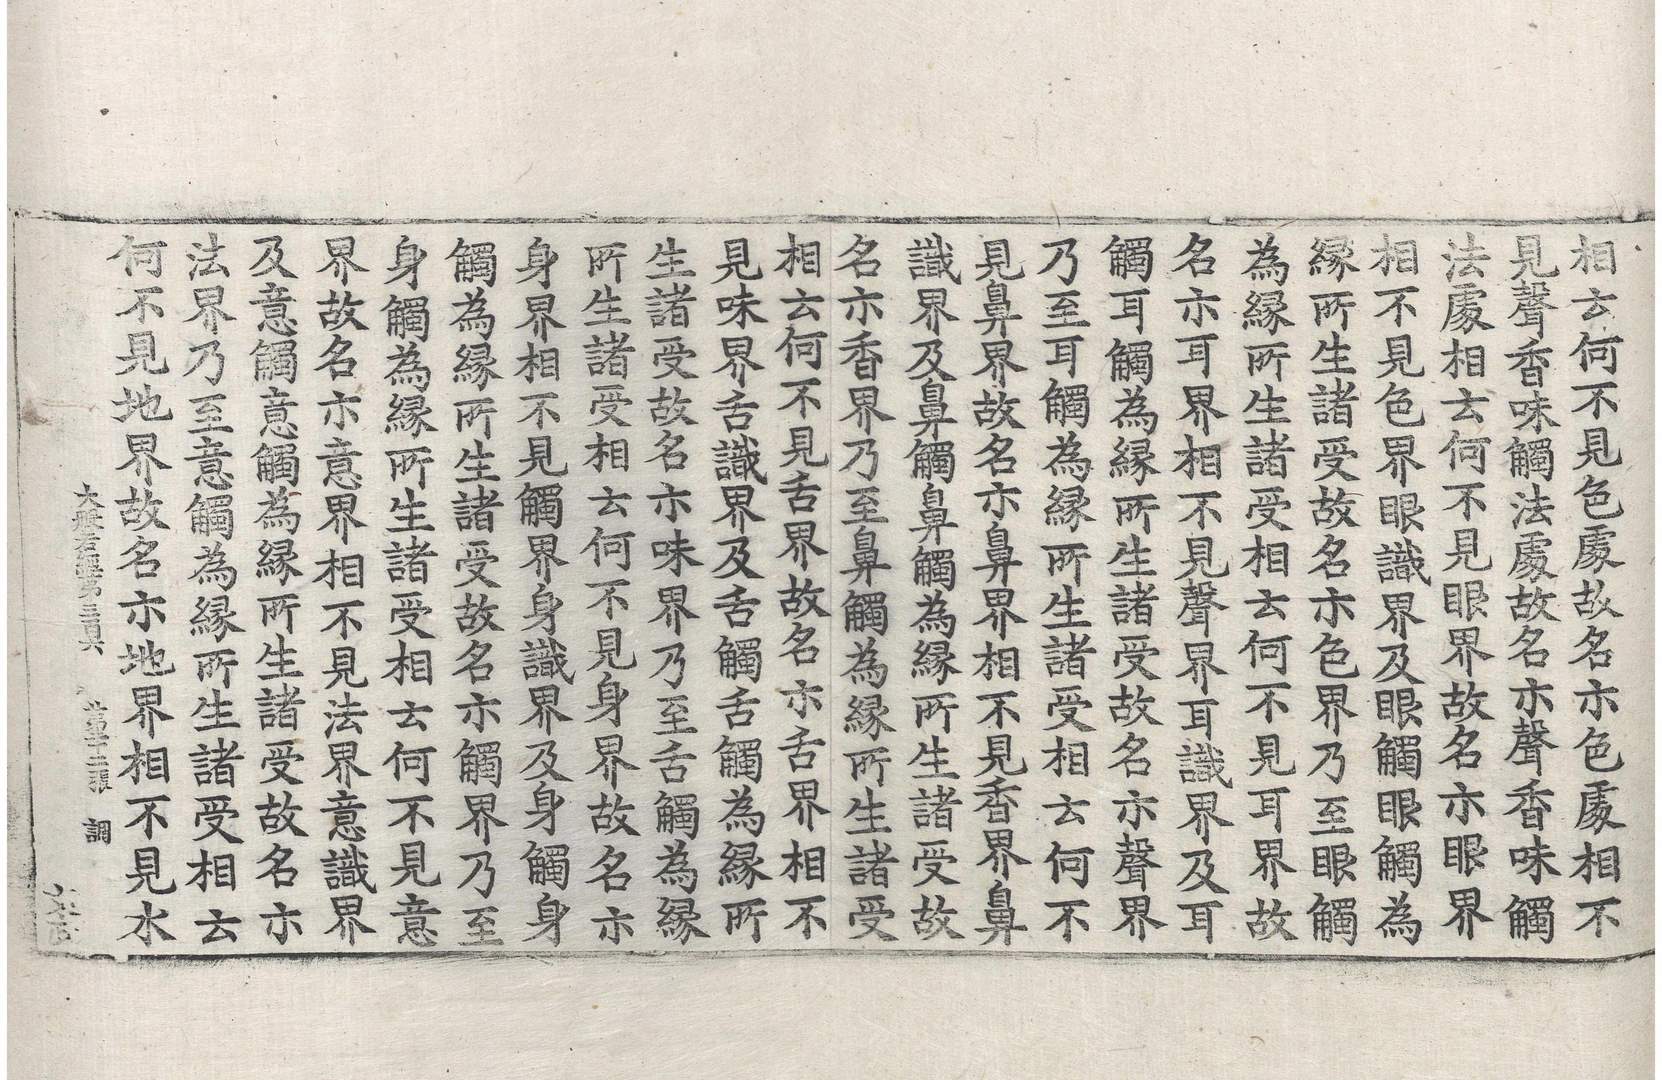 相云何不見色處故名亦色處相不
見聲香味觸法處故名亦聲香味觸
法處相云何不見眼界故名亦眼界
相不見色界眼識界及眼觸眼觸為
縁所生諸受故名亦色界乃至眼觸
為縁所生諸受相云何不見耳界故
名亦耳界相不見聲界耳識界及耳
觸耳觸為縁所生諸受故名亦聲界
乃至耳觸為縁所生諸受相云何不
見鼻界故名亦鼻界相不見香界鼻
識界及鼻觸鼻觸為縁所生諸受故
名亦香界乃至鼻觸為縁所生諸受
相云何不見舌界故名亦舌界相不
見味界舌識界及舌觸舌觸為縁所
生諸受故名亦味界乃至舌觸為縁
所生諸受相云何不見身界故名亦
身界相不見觸界身識界及身觸身
觸為縁所生諸受故名亦觸界乃至
身觸為縁所生諸受相云何不見意
界故名亦意界相不見法界意識界
及意觸意觸為縁所生諸受故名亦
法界乃至意觸為縁所生諸受相云
何不見地界故名亦地界相不見水
大般若經第三百 第十二張 調